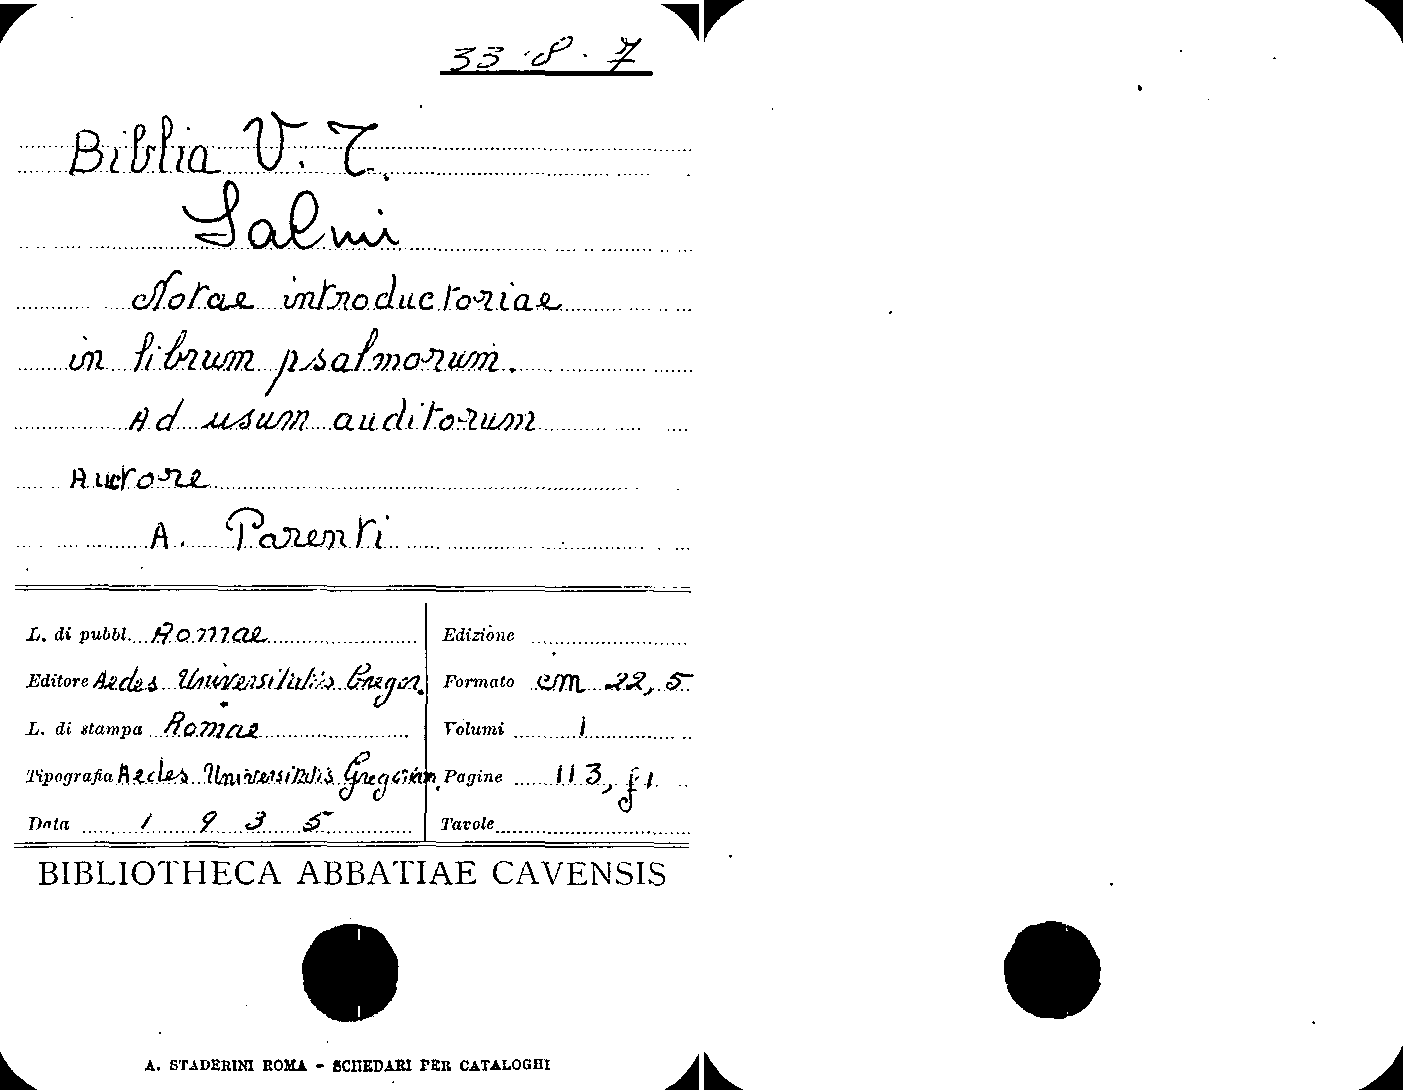 33.8.7
Biblia V. T.
Salmi
Notae introductoriae
in librum psalmorum.
Ad usum auditorum
Auctore
A. Parenti
L. di pubbl. Romae
Edizione
Editore Aedes Universitatis Gregor.
Formato cm 22,5
L. di stampa Romae
Volumi 1
Tipografia Aedes Universitatis Gregorian.
Pagine 113, f 1
Data 1935
Tavole
BIBLIOTHECA ABBATIAE CAVENSIS
A. STADERINI ROMA - SCHEDARI PER CATALOGHI